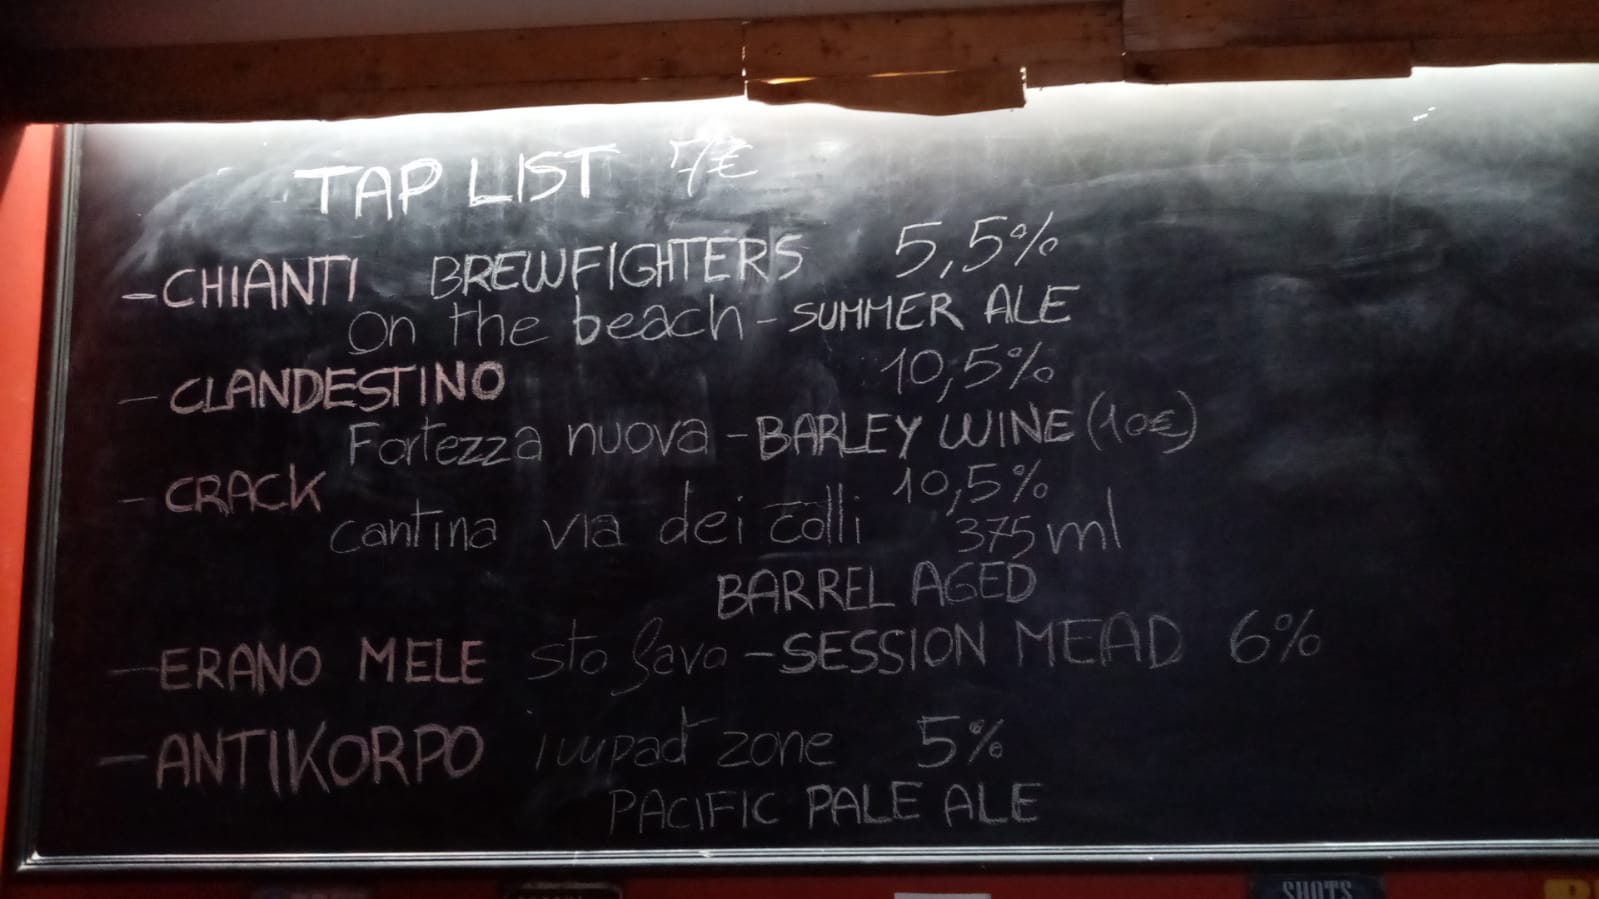 TAP LIST 7€
- CHIANTI BREWFIGHTERS 5,5%
On the beach - SUMMER ALE
- CLANDESTINO 10,5%
Fortezza nuova - BARLEY WINE (10€)
- CRACK 10,5%
cantina via dei colli 375 ml
BARREL AGED
- ERANO MELE sto - SESSION MEAD 6%
- ANTIKORPO impact zone 5%
PACIFIC PALE ALE
SHOTS